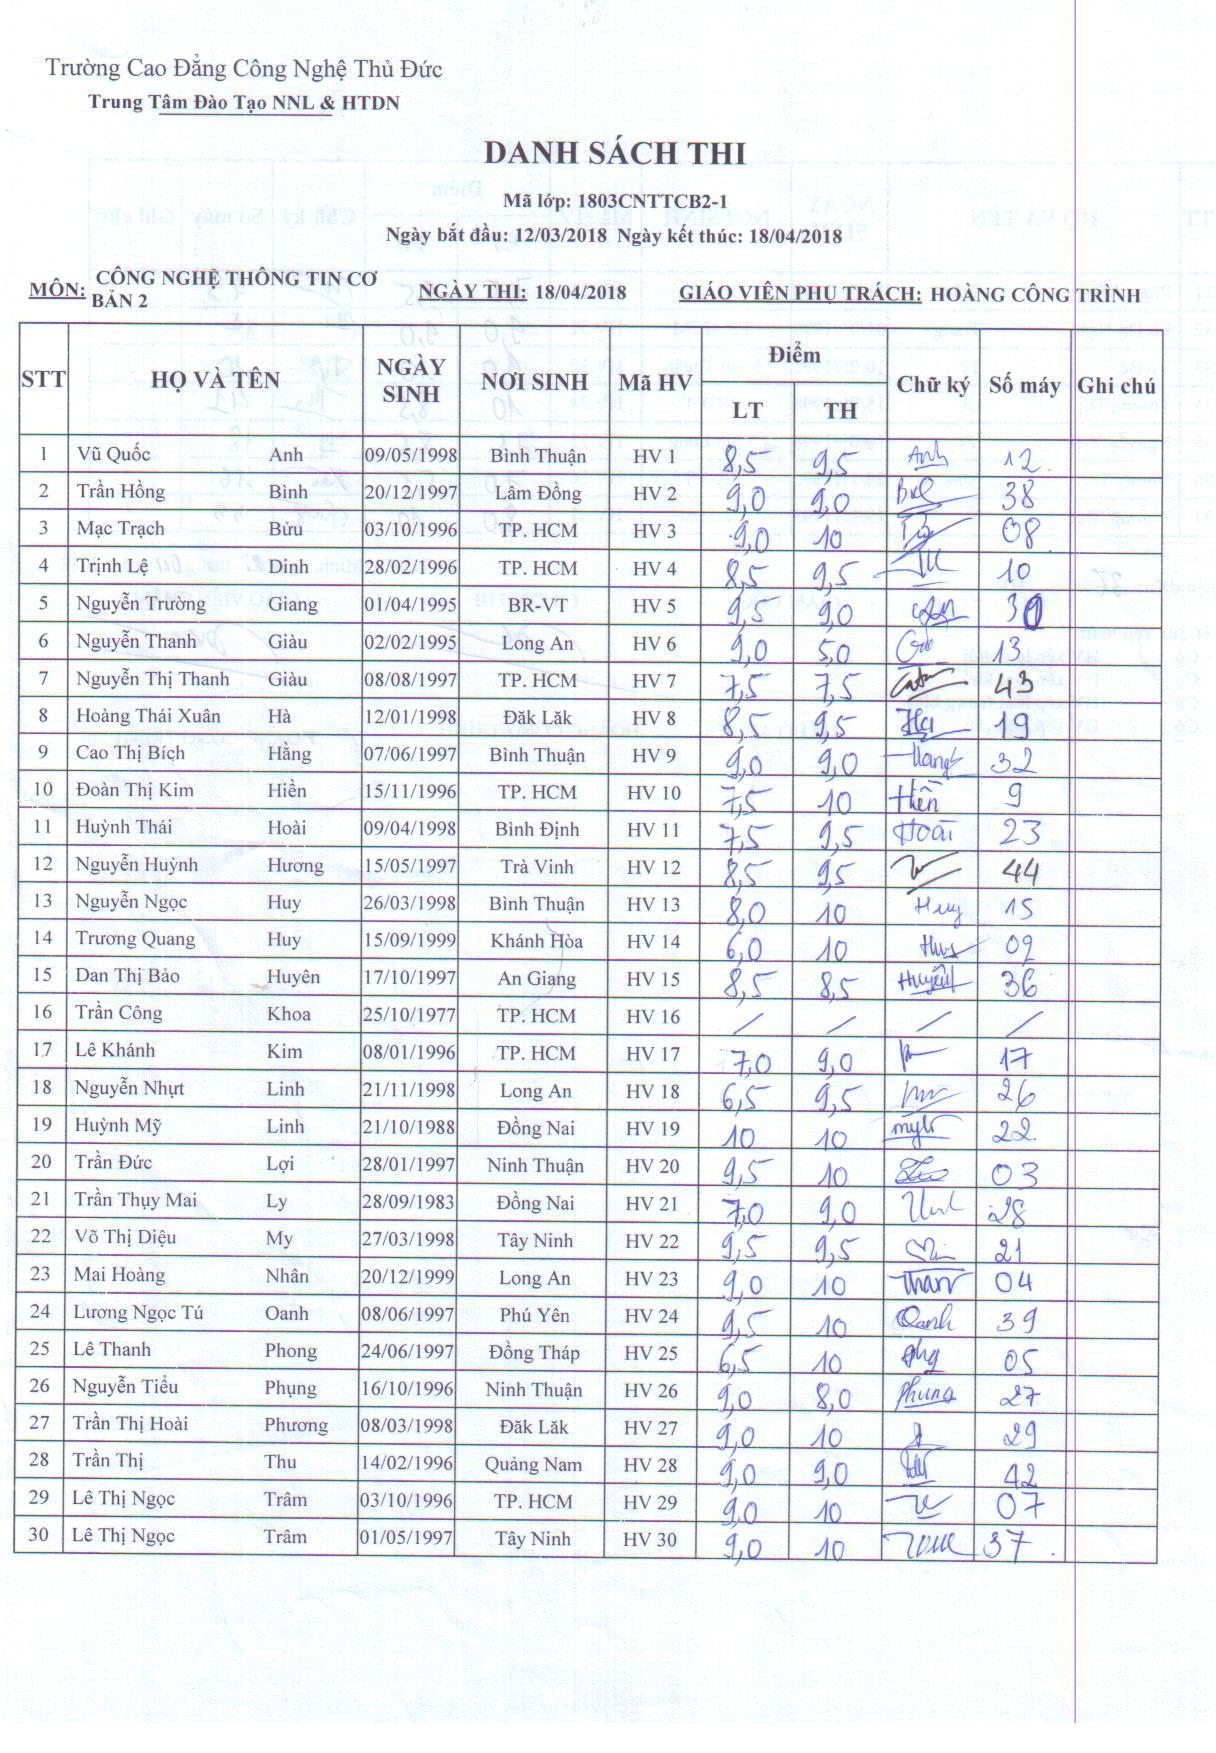 Trường Cao Đẳng Công Nghệ Thủ Đức
Trung Tâm Đào Tạo NNL & HTDN
DANH SÁCH THI
Mã lớp: 1803CNTTCB2-1
Ngày bắt đầu: 12/03/2018 Ngày kết thúc: 18/04/2018
MÔN: CÔNG NGHỆ THÔNG TIN CƠ BẢN 2 NGÀY THI: 18/04/2018 GIÁO VIÊN PHỤ TRÁCH: HOÀNG CÔNG TRÌNH
STT HỌ VÀ TÊN NGÀY SINH NƠI SINH Mã HV Điểm Chữ ký Số máy Ghi chú
LT TH
1 Vũ Quốc Anh 09/05/1998 Bình Thuận HV 1 8,5 9,5 Anh 12
2 Trần Hồng Bình 20/12/1997 Lâm Đồng HV 2 9,0 9,0 38
3 Mạc Trạch Bửu 03/10/1996 TP. HCM HV 3 9,0 10 08
4 Trịnh Lệ Dinh 28/02/1996 TP. HCM HV 4 8,5 9,5 10
5 Nguyễn Trường Giang 01/04/1995 BR-VT HV 5 9,5 9,0
6 Nguyễn Thanh Giàu 02/02/1995 Long An HV 6 9,0 5,0 13
7 Nguyễn Thị Thanh Giàu 08/08/1997 TP. HCM HV 7 7,5 7,5 43
8 Hoàng Thái Xuân Hà 12/01/1998 Đăk Lăk HV 8 8,5 9,5 Ha 19
9 Cao Thị Bích Hằng 07/06/1997 Bình Thuận HV 9 9,0 9,0 Hang 32
10 Đoàn Thị Kim Hiền 15/11/1996 TP. HCM HV 10 7,5 10 Hiền 9
11 Huỳnh Thái Hoài 09/04/1998 Bình Định HV 11 7,5 9,5 Hoài 23
12 Nguyễn Huỳnh Hương 15/05/1997 Trà Vinh HV 12 8,5 9,5 44
13 Nguyễn Ngọc Huy 26/03/1998 Bình Thuận HV 13 8,0 10 Huy 15
14 Trương Quang Huy 15/09/1999 Khánh Hòa HV 14 6,0 10 02
15 Dan Thị Bảo Huyên 17/10/1997 An Giang HV 15 8,5 8,5 36
16 Trần Công Khoa 25/10/1977 TP. HCM HV 16 / / / /
17 Lê Khánh Kim 08/01/1996 TP. HCM HV 17 7,0 9,0 17
18 Nguyễn Nhựt Linh 21/11/1998 Long An HV 18 6,5 9,5 26
19 Huỳnh Mỹ Linh 21/10/1988 Đồng Nai HV 19 10 10 22
20 Trần Đức Lợi 28/01/1997 Ninh Thuận HV 20 9,5 10 03
21 Trần Thụy Mai Ly 28/09/1983 Đồng Nai HV 21 7,0 9,0 28
22 Võ Thị Diệu My 27/03/1998 Tây Ninh HV 22 9,5 9,5 21
23 Mai Hoàng Nhân 20/12/1999 Long An HV 23 9,0 10 04
24 Lương Ngọc Tú Oanh 08/06/1997 Phú Yên HV 24 9,5 10 Oanh 39
25 Lê Thanh Phong 24/06/1997 Đồng Tháp HV 25 6,5 10 05
26 Nguyễn Tiểu Phụng 16/10/1996 Ninh Thuận HV 26 9,0 8,0 Phung 27
27 Trần Thị Hoài Phương 08/03/1998 Đăk Lăk HV 27 9,0 10 29
28 Trần Thị Thu 14/02/1996 Quảng Nam HV 28 9,0 9,0 42
29 Lê Thị Ngọc Trâm 03/10/1996 TP. HCM HV 29 9,0 10 07
30 Lê Thị Ngọc Trâm 01/05/1997 Tây Ninh HV 30 9,0 10 37